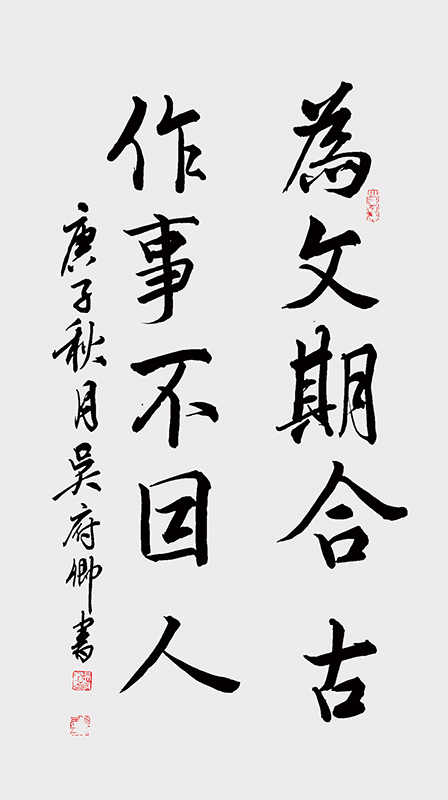 為文期合古
作事不因人
庚子秋月吴府卿書